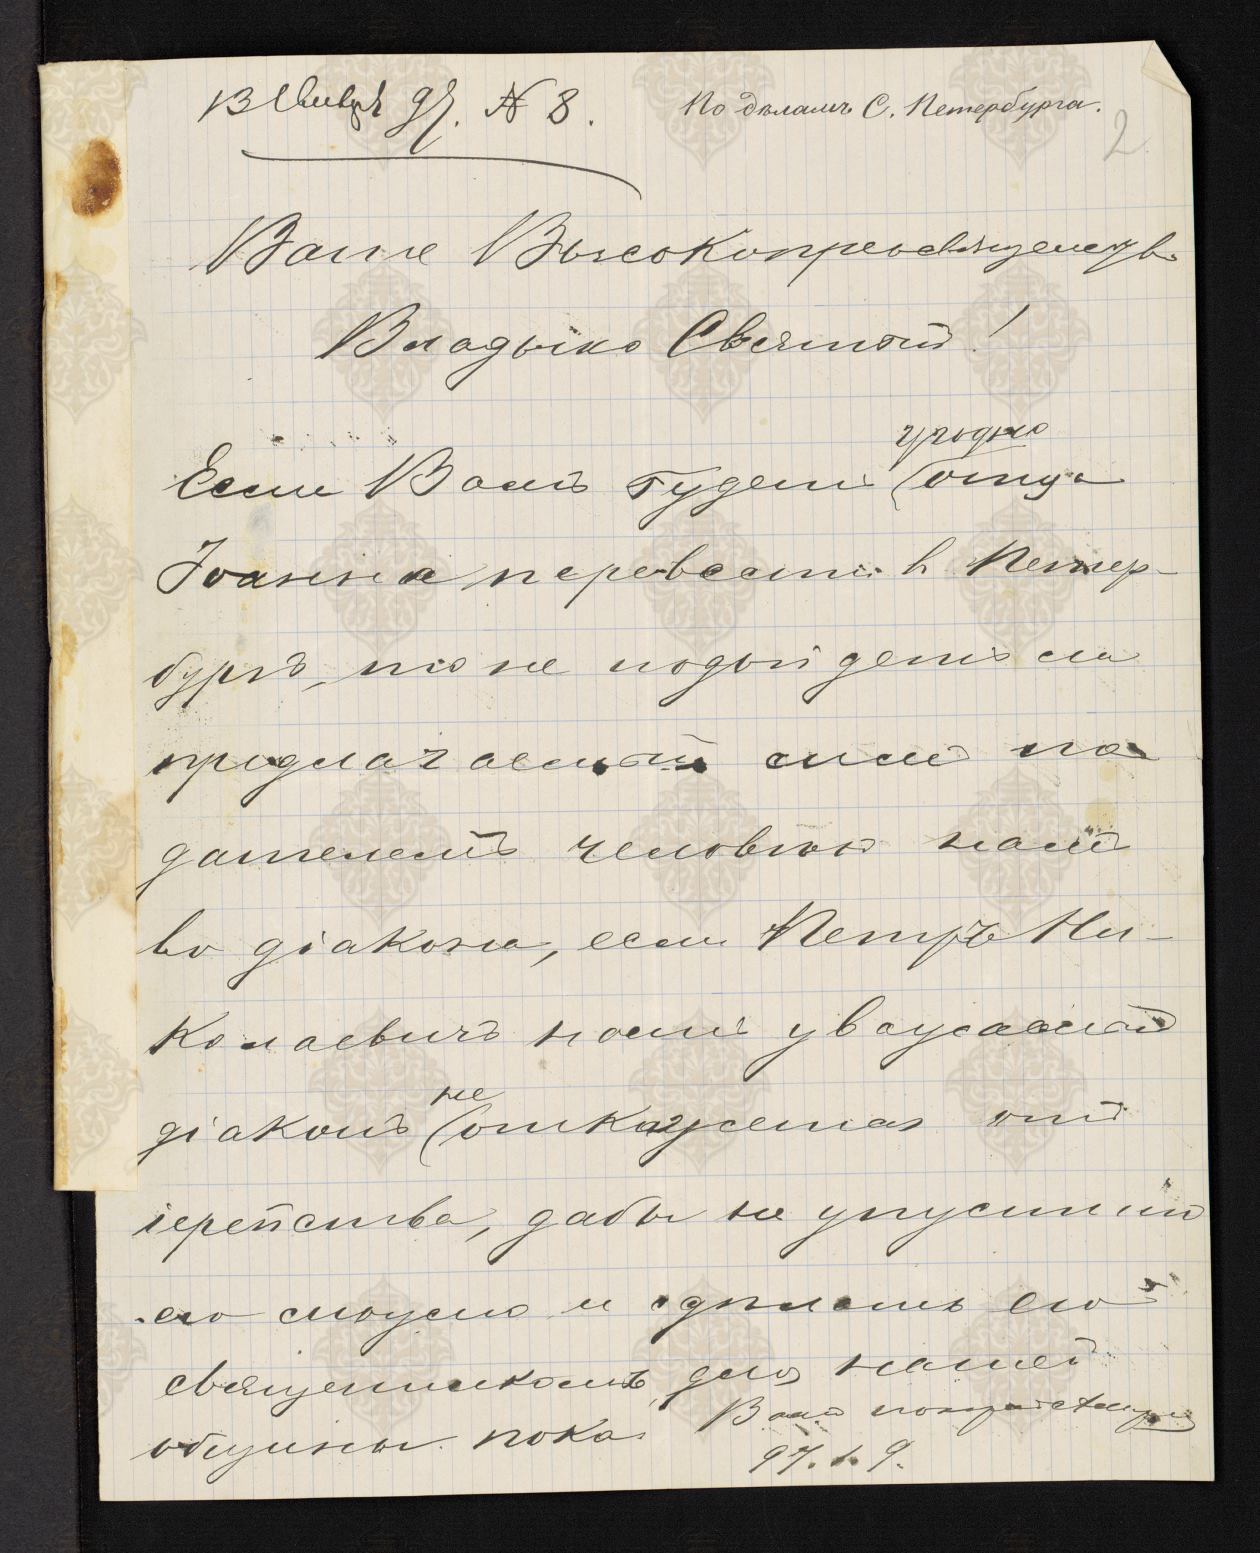 13 Января 97. № 8.
По дѣламъ С. Петербурга.
2
Ваше Высокопреосвященство
Владыко Святый!
угодно
Если Вамъ будетъ (отца
Іоанна перевести в Петер-
бургъ, то не подойдетъ ли
предлагаемый симъ по
дателемъ человѣкъ намъ
во діакона, если Петръ Ни-
колаевичъ нашъ уважаемый
не
діаконъ (откажется отъ
іерейства, дабы не упустить
его можно и сдѣлать его
священникомъ для нашей
общины пока.
Вашъ
97. 1. 9.